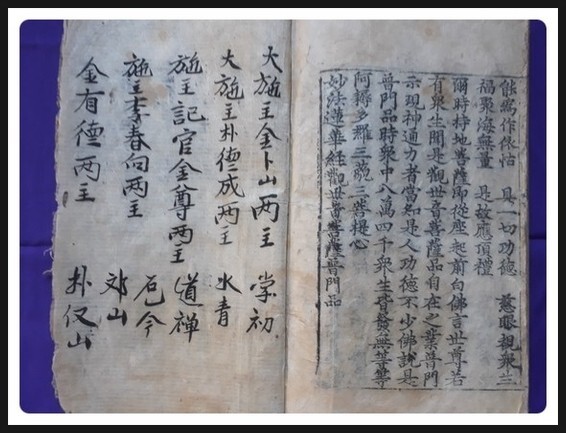 能爲作依怙 具一切功德 慈眼視衆生
福聚海無量 是故應頂禮
爾時持地菩薩即從座起前白佛言世尊若
有衆生聞是觀世音菩薩品自在之業普門
示現神通力者當知是人功德不少佛說是
普門品時衆中八萬四千衆生皆發無等等
阿耨多羅三藐三菩提心
妙法蓮華經觀世音菩薩普門品
大施主金卜山两主
大施主朴德成两主 水青
施主記官金尊两主 道禅
施主李春向两主
金有德两主